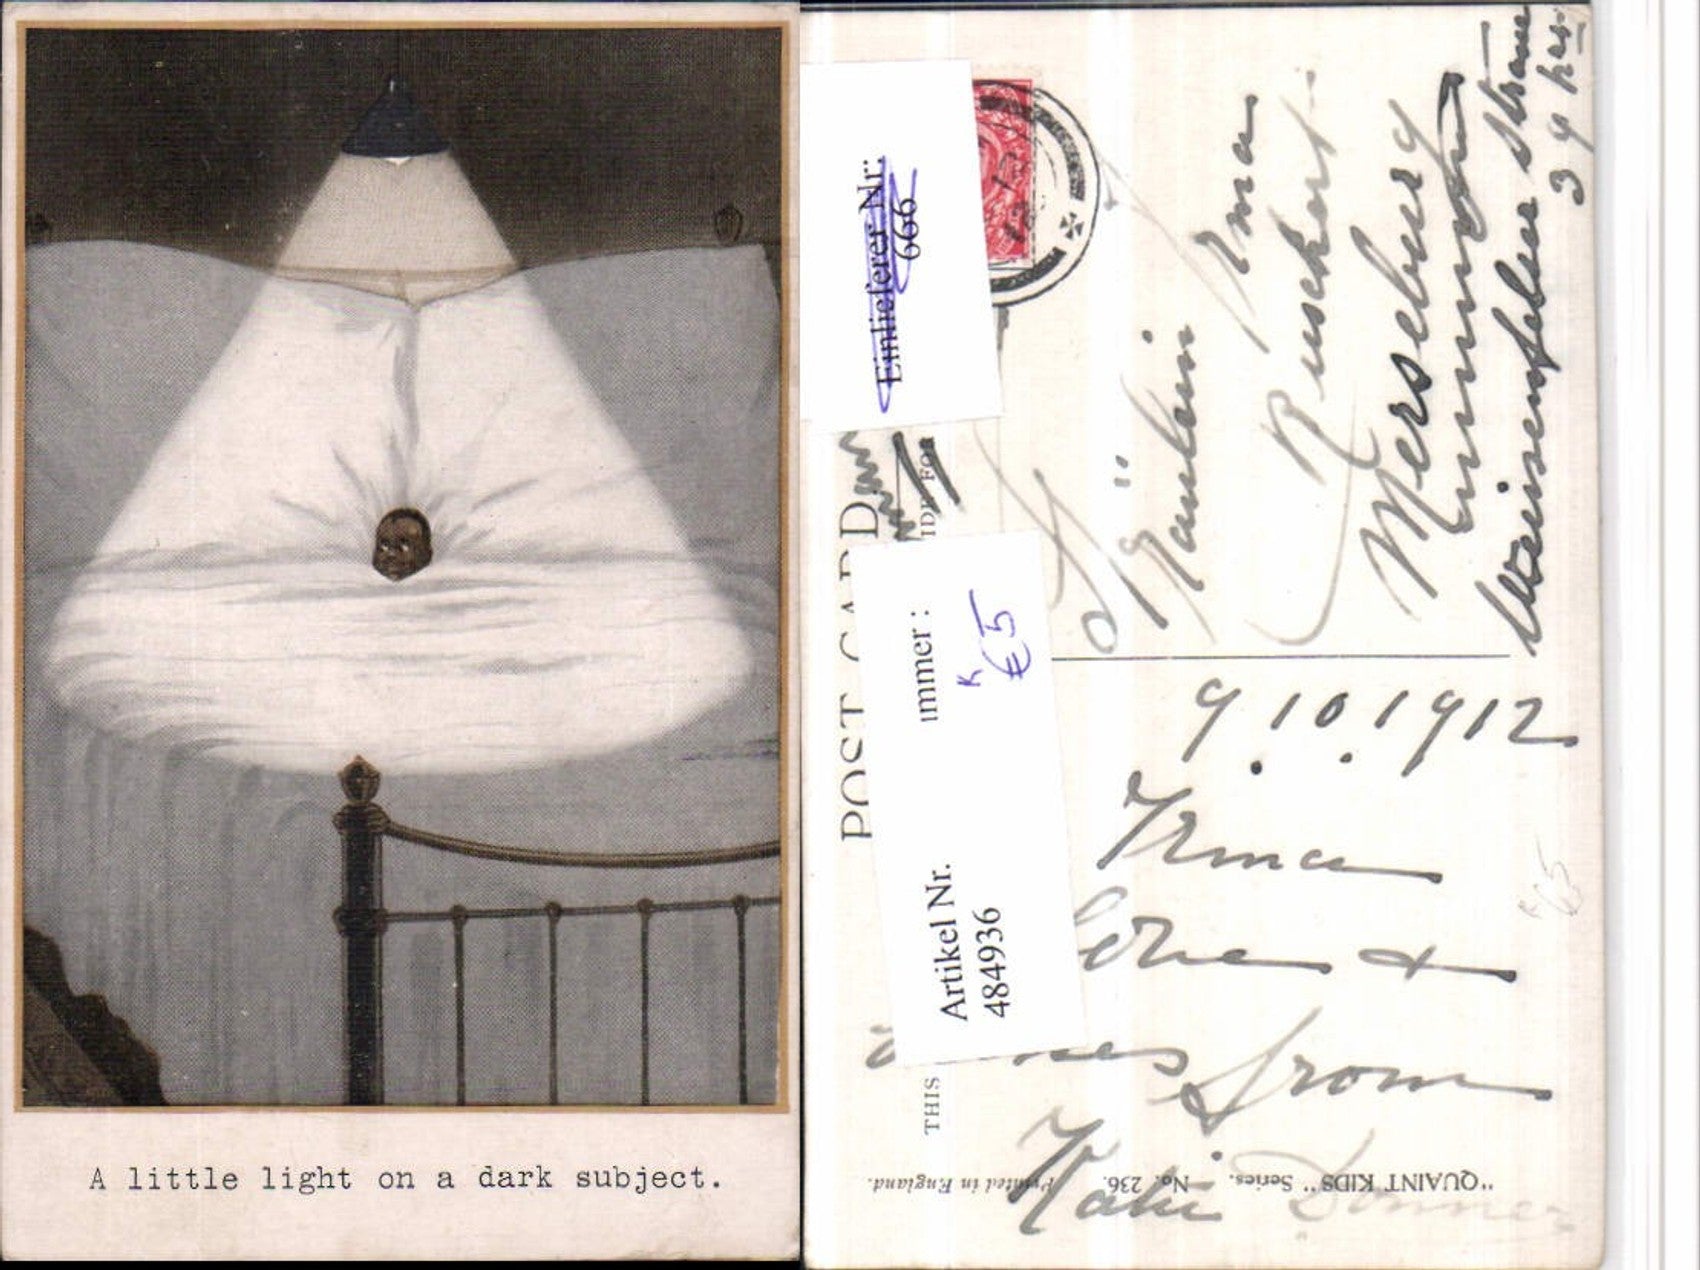 A little light on a dark subject.
POST CARD
THIS
IDE FOR
Einlieferer Nr:
666
Artikel Nr.
484936
ummer :
K
€5
Fräulein
Irma
Ruschert
Merseburg
Weissenfelser Strasse
39
9.10.1912
from
Katie
"QUAINT KIDS" Series. No. 236. Printed in England.